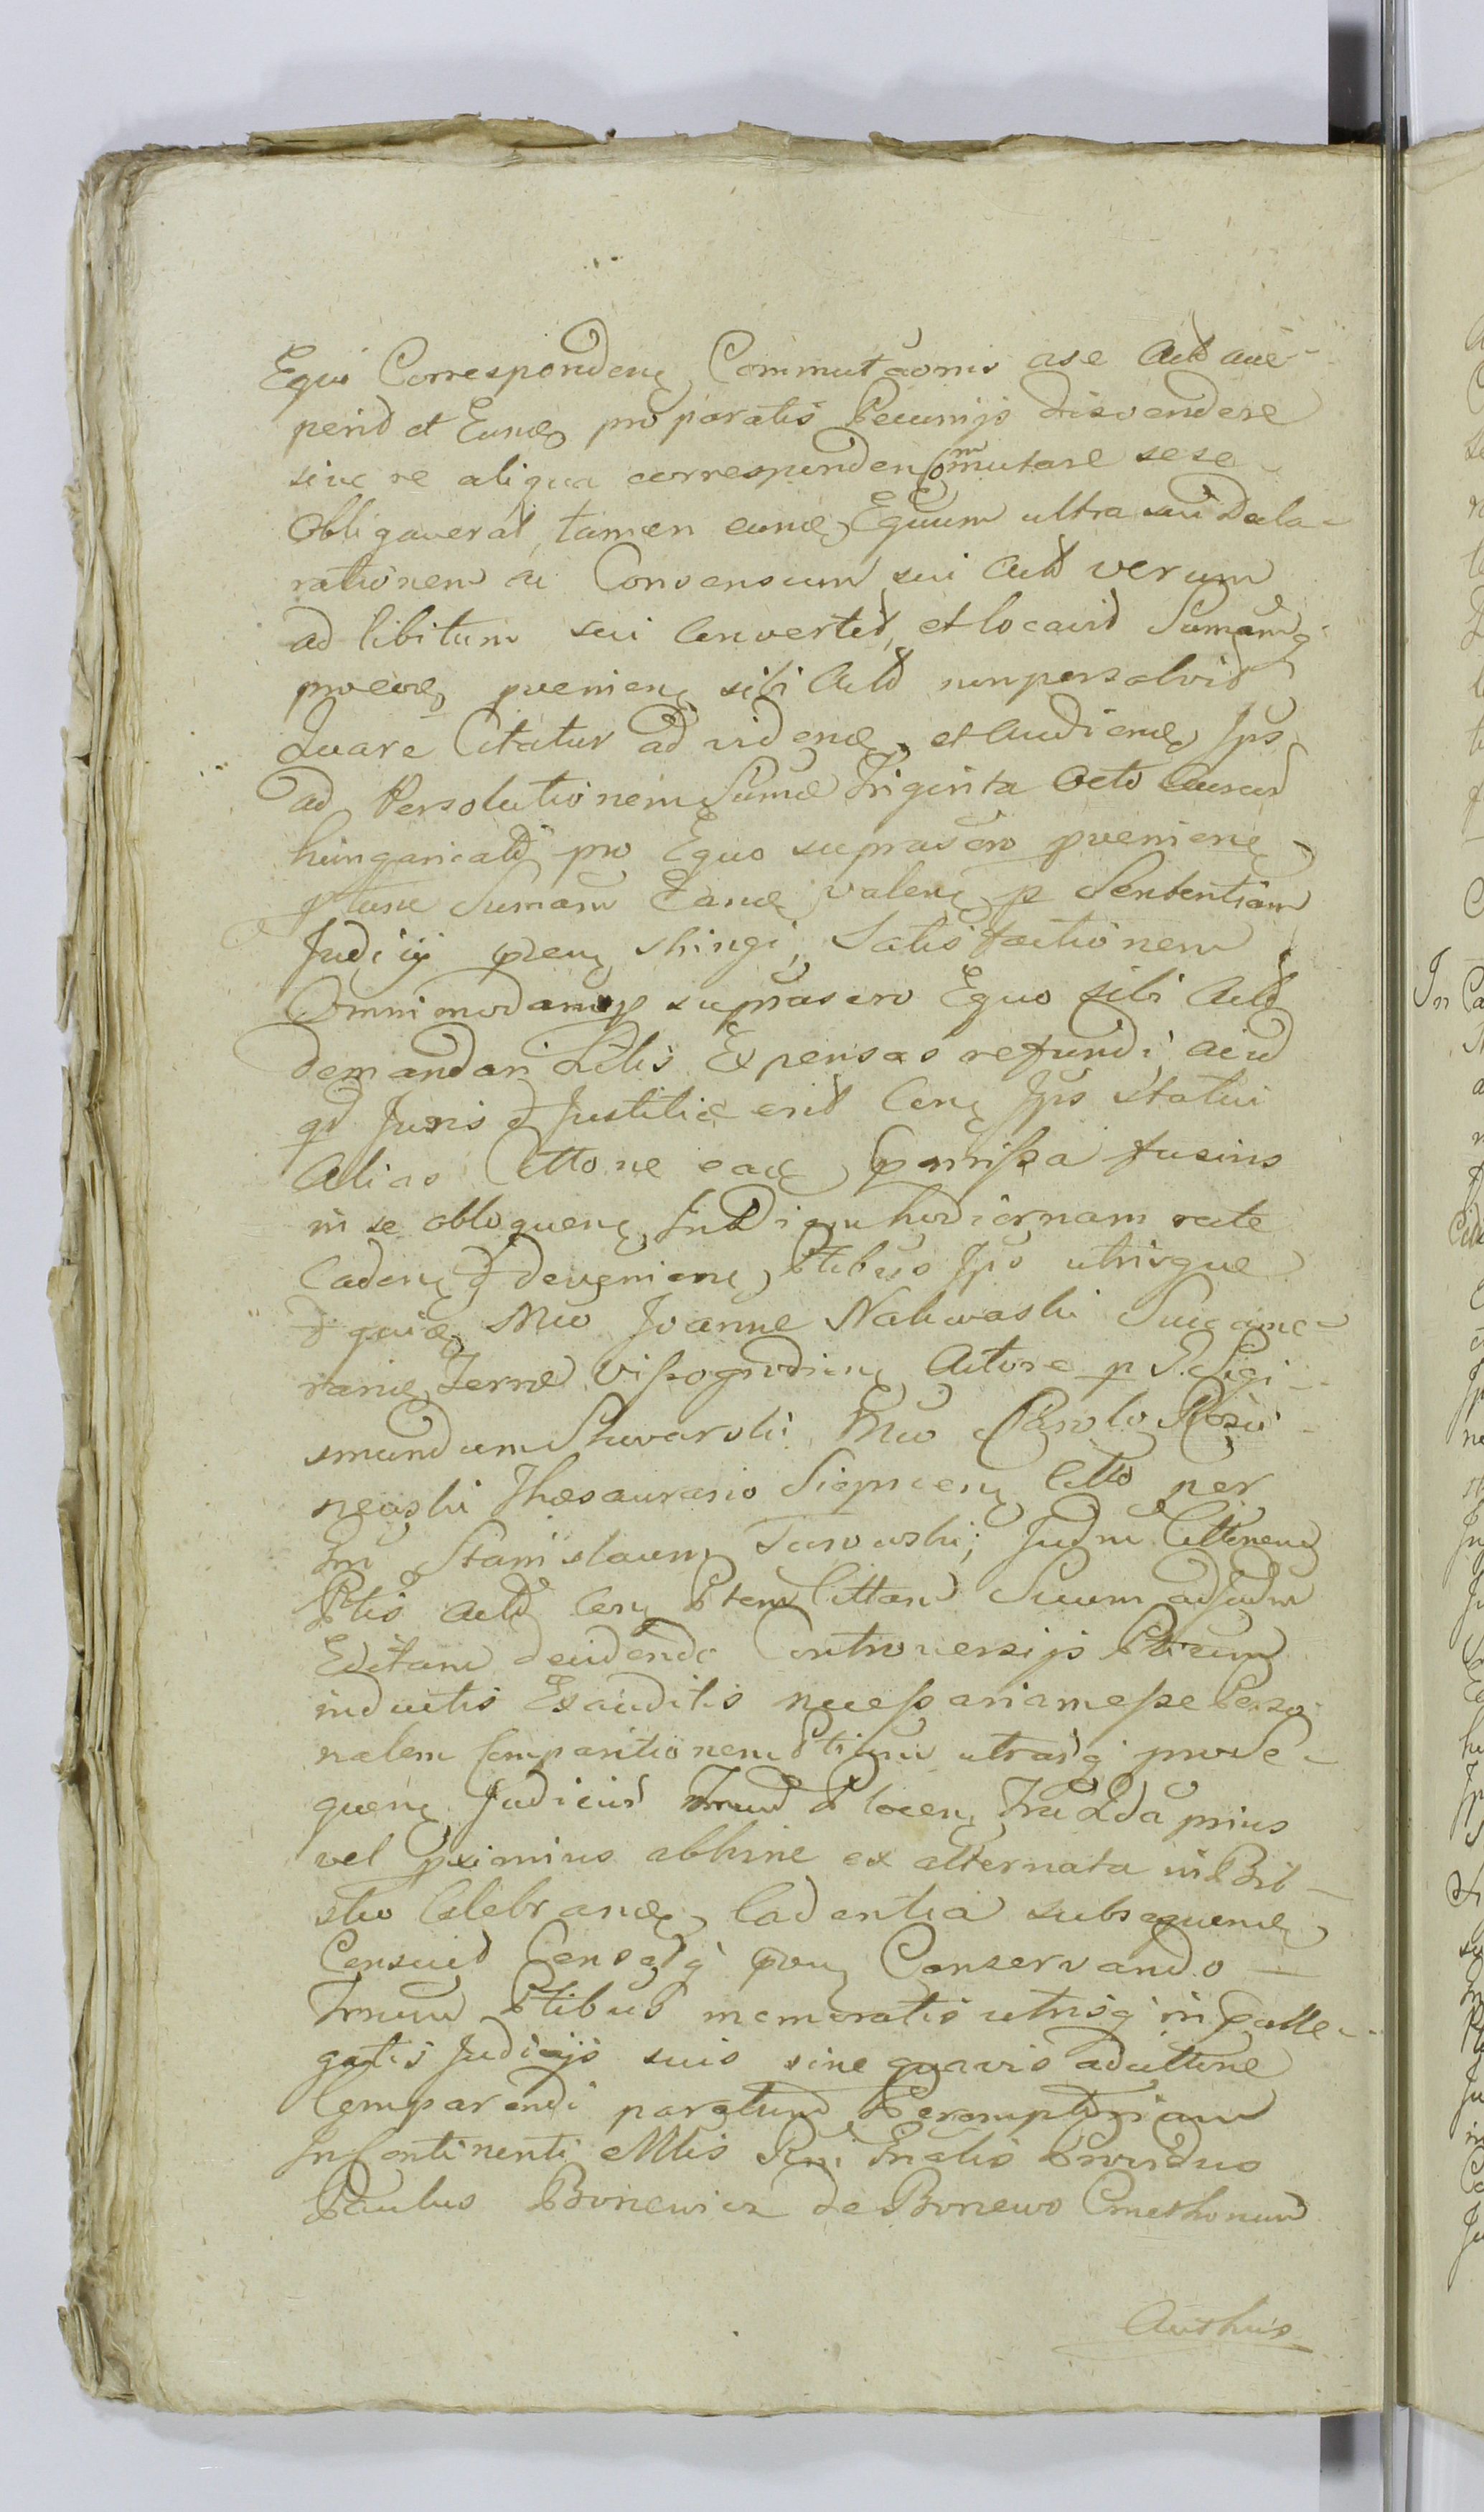 Equi Corresponden Commutaonis ase Actt acce-
perid et Eund pro paratis Pecunijs disvendere
sive re aliqua corresponden Comutare sese
Obligaverat, tamen eund Equum ultra sui Decla-
rationem ac Consensum sui Actt verum
ad libitum sui Convertid, et locavid Sumamq
pro eod pvenien sibi Actt non persolvid
Quare Citatur ad vidend et audiend Ips
ad Persolutionem Sumæ Triginta Octo Aureud
hungaricald pro Equo suprascro pvenien
Sumam Eand valen p Sententiam
Judicij pren stringi, Satisfactionem
Omnimodam p suprascro Equo sibi Actt
demandari Litis Expensas refundi acid
qd Juris & Justitiæ erit Cen Ips statui
Alias Citto ne ead pmissa fusius
in se obloquen In Diem hodiernam recte
Caden & devenien Ptibus Ips utrisque
Mco Joanne Nakwaski Succame-
rario Terræ Vissogrodien Actore p G. Sigi-
smundum Skwarski Mco Carolo Rosci-
newski Thesaurario Sierpcen Citto per
Gm Stanislaum Turowski; Judm Cittonem
Ptis Actt Cen Ptem Cittam Suum ad Judm
Editam decidendo Controversijs Ptium
inductis Exauditis necessariam esse Perso-
nalem Comparitionem Ptium utrasq prose-
quen Judiciud Trnum Plocen Fra 2da prius
vel pximius abhinc ex alternata in Piot-
stio Celebrand Cadentia subsequend
Censuid Censetq pren Conservando
Trnum Ptibus memoratis utrisq in palle-
gatis Judicijs suis sine quavis adcittone
Comparendi paratum Peremptoriam
In Continenti Mlis Rni Gnalis Providus
Paulus Boncwicz de Bonewo Cmethonum
Authus